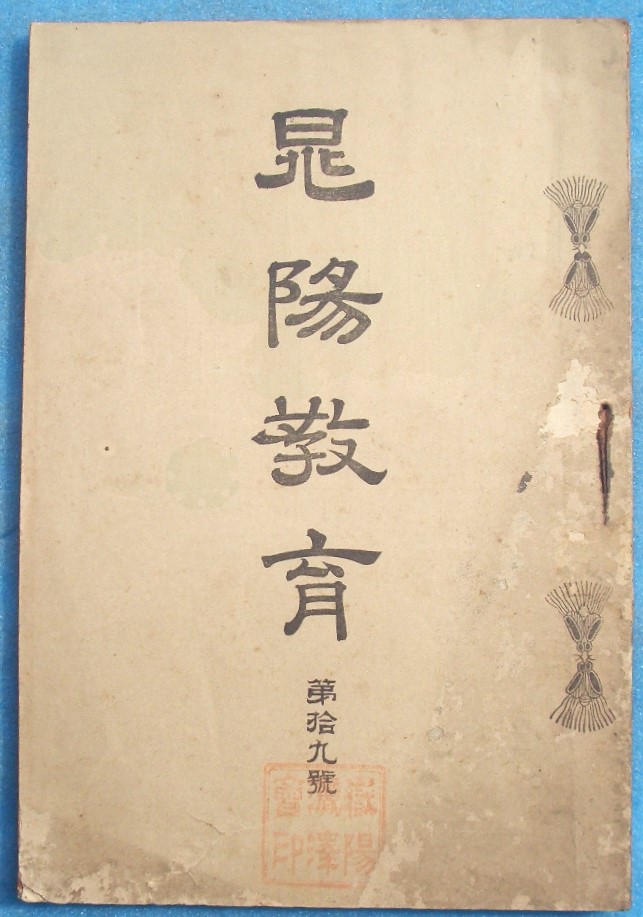 晁陽教育
第拾九號
嶽陽
澤
會印